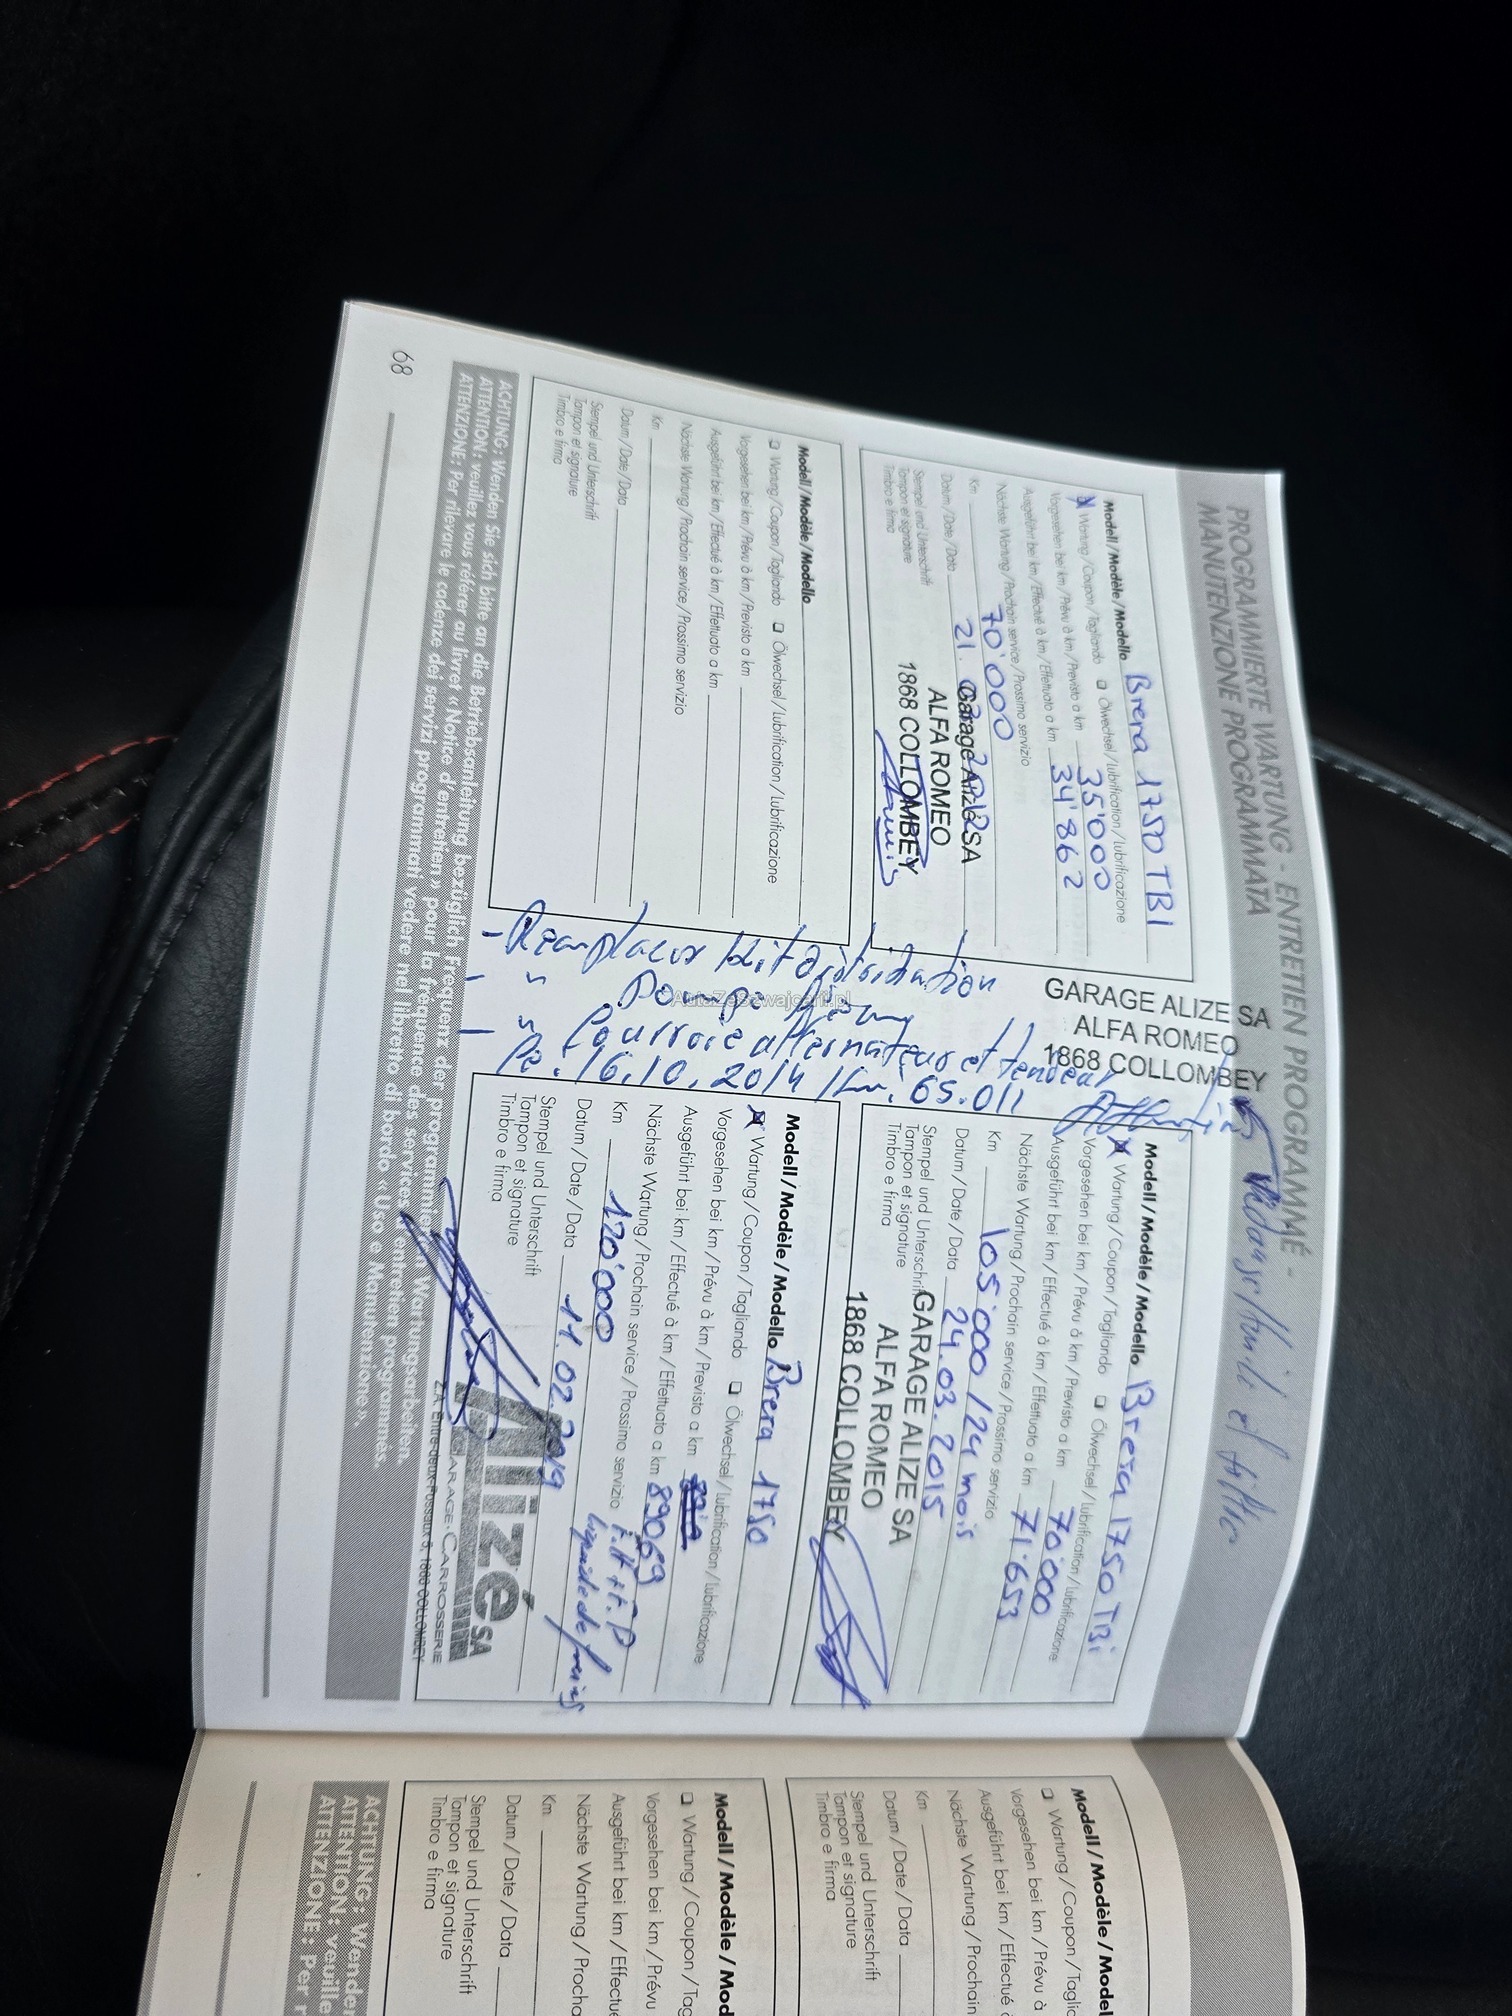 PROGRAMMIERTE WARTUNG - ENTRETIEN PROGRAMMÉ -
MANUTENZIONE PROGRAMMATA
Modell / Modèle / Modello Brera 1750 TBI
X Wartung / Coupon / Tagliando ❑ Ölwechsel / lubrification / lubrificazione
Vorgesehen bei km / Prévu à km / Previsto a km 35'000
Ausgeführt bei km / Effectué à km / Effettuato a km 34'862
Nächste Wartung / Prochain service / Prossimo servizio
Km 70'000
Datum / Date / Data 21.
Stempel und Unterschrift
Tampon et signature
Timbro e firma
Garage Alizé SA
ALFA ROMEO
1868 COLLOMBEY
GARAGE ALIZE SA
ALFA ROMEO
1868 COLLOMBEY
et filtre
- kit distribution
- " pompe
- " alternateur et tendeur
16.10.2014 / km. 65.011
Modell / Modèle / Modello Brera 1750 TBi
X Wartung / Coupon / Tagliando ❑ Ölwechsel / lubrification / lubrificazione
Vorgesehen bei km / Prévu à km / Previsto a km 70'000
Ausgeführt bei km / Effectué à km / Effettuato a km 71'653
Nächste Wartung / Prochain service / Prossimo servizio
Km 105'000 / 24 mois
Datum / Date / Data 24.03.2015
Stempel und Unterschrift
Tampon et signature
Timbro e firma
GARAGE ALIZE SA
ALFA ROMEO
1868 COLLOMBEY
Modell / Modèle / Modello
❑ Wartung / Coupon / Tagliando ❑ Ölwechsel / lubrification / lubrificazione
Vorgesehen bei km / Prévu à km / Previsto a km
Ausgeführt bei km / Effectué à km / Effettuato a km
Nächste Wartung / Prochain service / Prossimo servizio
Km
Datum / Date / Data
Stempel und Unterschrift
Tampon et signature
Timbro e firma
Modell / Modèle / Modello Brera 1750
X Wartung / Coupon / Tagliando ❑ Ölwechsel / lubrification / lubrificazione
Vorgesehen bei km / Prévu à km / Previsto a km
Ausgeführt bei km / Effectué à km / Effettuato a km 89069
Nächste Wartung / Prochain service / Prossimo servizio F.H + F.P
Km 120'000 liquide de freins
Datum / Date / Data 11.02.2019
Stempel und Unterschrift
Tampon et signature
Timbro e firma
Alizé SA
GARAGE-CARROSSERIE
1868 COLLOMBEY
ACHTUNG: Wenden Sie sich bitte an die Betriebsanleitung bezüglich Frequenz der programmierten Wartungsarbeiten.
ATTENTION: veuillez vous référer au livret «Notice d'entretien» pour la fréquence des services d'entretien programmés.
ATTENZIONE: Per rilevare le cadenze dei servizi programmati vedere nel libretto di bordo «Uso e Manutenzione».
68
AutaZeSzwajcarii.pl
Modell / Modèle / Model
❑ Wartung / Coupon / Tagl
Vorgesehen bei km / Prévu à
Ausgeführt bei km / Effectué
Nächste Wartung / Prochain
Km
Datum / Date / Data
Stempel und Unterschrift
Tampon et signature
Timbro e firma
Modell / Modèle / Mod
❑ Wartung / Coupon / Tag
Vorgesehen bei km / Prévu
Ausgeführt bei km / Effectu
Nächste Wartung / Procha
Km
Datum / Date / Data
Stempel und Unterschrift
Tampon et signature
Timbro e firma
ACHTUNG: Wende
ATTENTION: veuille
ATTENZIONE: Per r